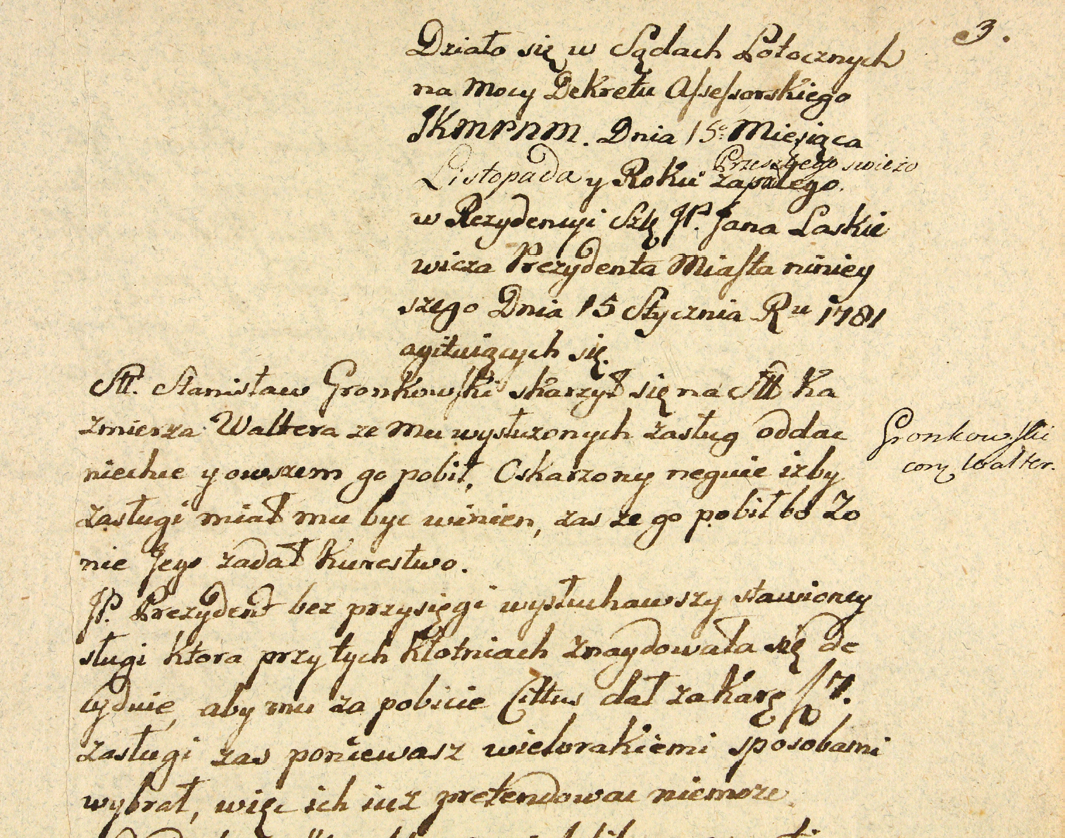 3.
Działo się w Sądach Potocznych
na Mocy Dekretu Assessorskiego
JKMPNM. Dnia 15º Miesiąca
Listopada y Roku zapałego.
Przeszłego swieżo
w Rezydencyi Szlꝫ JP. Jana Laskie
wicza Prezydenta Miasta niniey
szego Dnia 15 Stycznia Ru 1781
agituiących się.
Stt. Stanisław Gronkowski skarzył się na Stt Ka
zmierza Waltera ze Mu wysłużonych zasług oddac
niechce y owszem go pobił, Oskarzony neguie izby
zasługi miał mu byc winien, zas ze go pobił bo Zo
nie Jego zadał Kurestwo.
Gronkowski
cony Walter.
JP. Prezydent bez przysięgi wysłuchawszy stawioney
sługi ktora przy tych kłotniach znaydowała się de
cyduie, aby mu za pobicie Cittus dał za karę f 7.
zasługi zas poniewasz wielorakiemi sposobami
wybrał, więc ich iuz pretendowac niemoze.